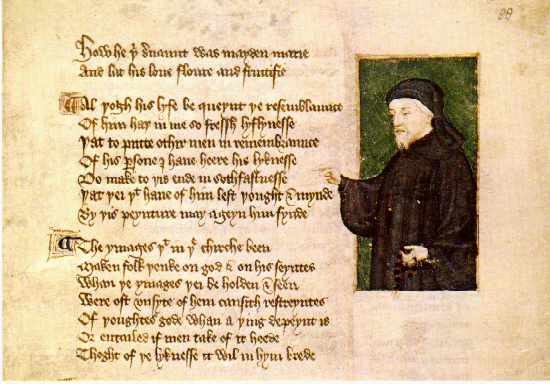 88
How he þͥ s̉uaunt was mayden marie
And lat his loue floure and fructifie
Al þogh his lyfe be queynt þe resemblaunce
Of him haþ in me so fressh lyflynesse
Þat to putte othir men in remembraunce
Of his ꝑsone I haue heere his lyknesse
Do make to þis ende in sothfastnesse
Þat þei þᵗ haue of him left þought & mynde
By þis peynture may ageyn him fynde
The ymages þᵗ in þᵉ chirche been
Maken folk þenke on god & on his seyntes
Whan þe ymages þei beholden & seen
Were oft vnsyte of hem causith restreyntes
Of þoughtes gode whan a þing depeynt is
Or entailed if men take of it heede
Thoght of þe lyknesse it wil in hym brede